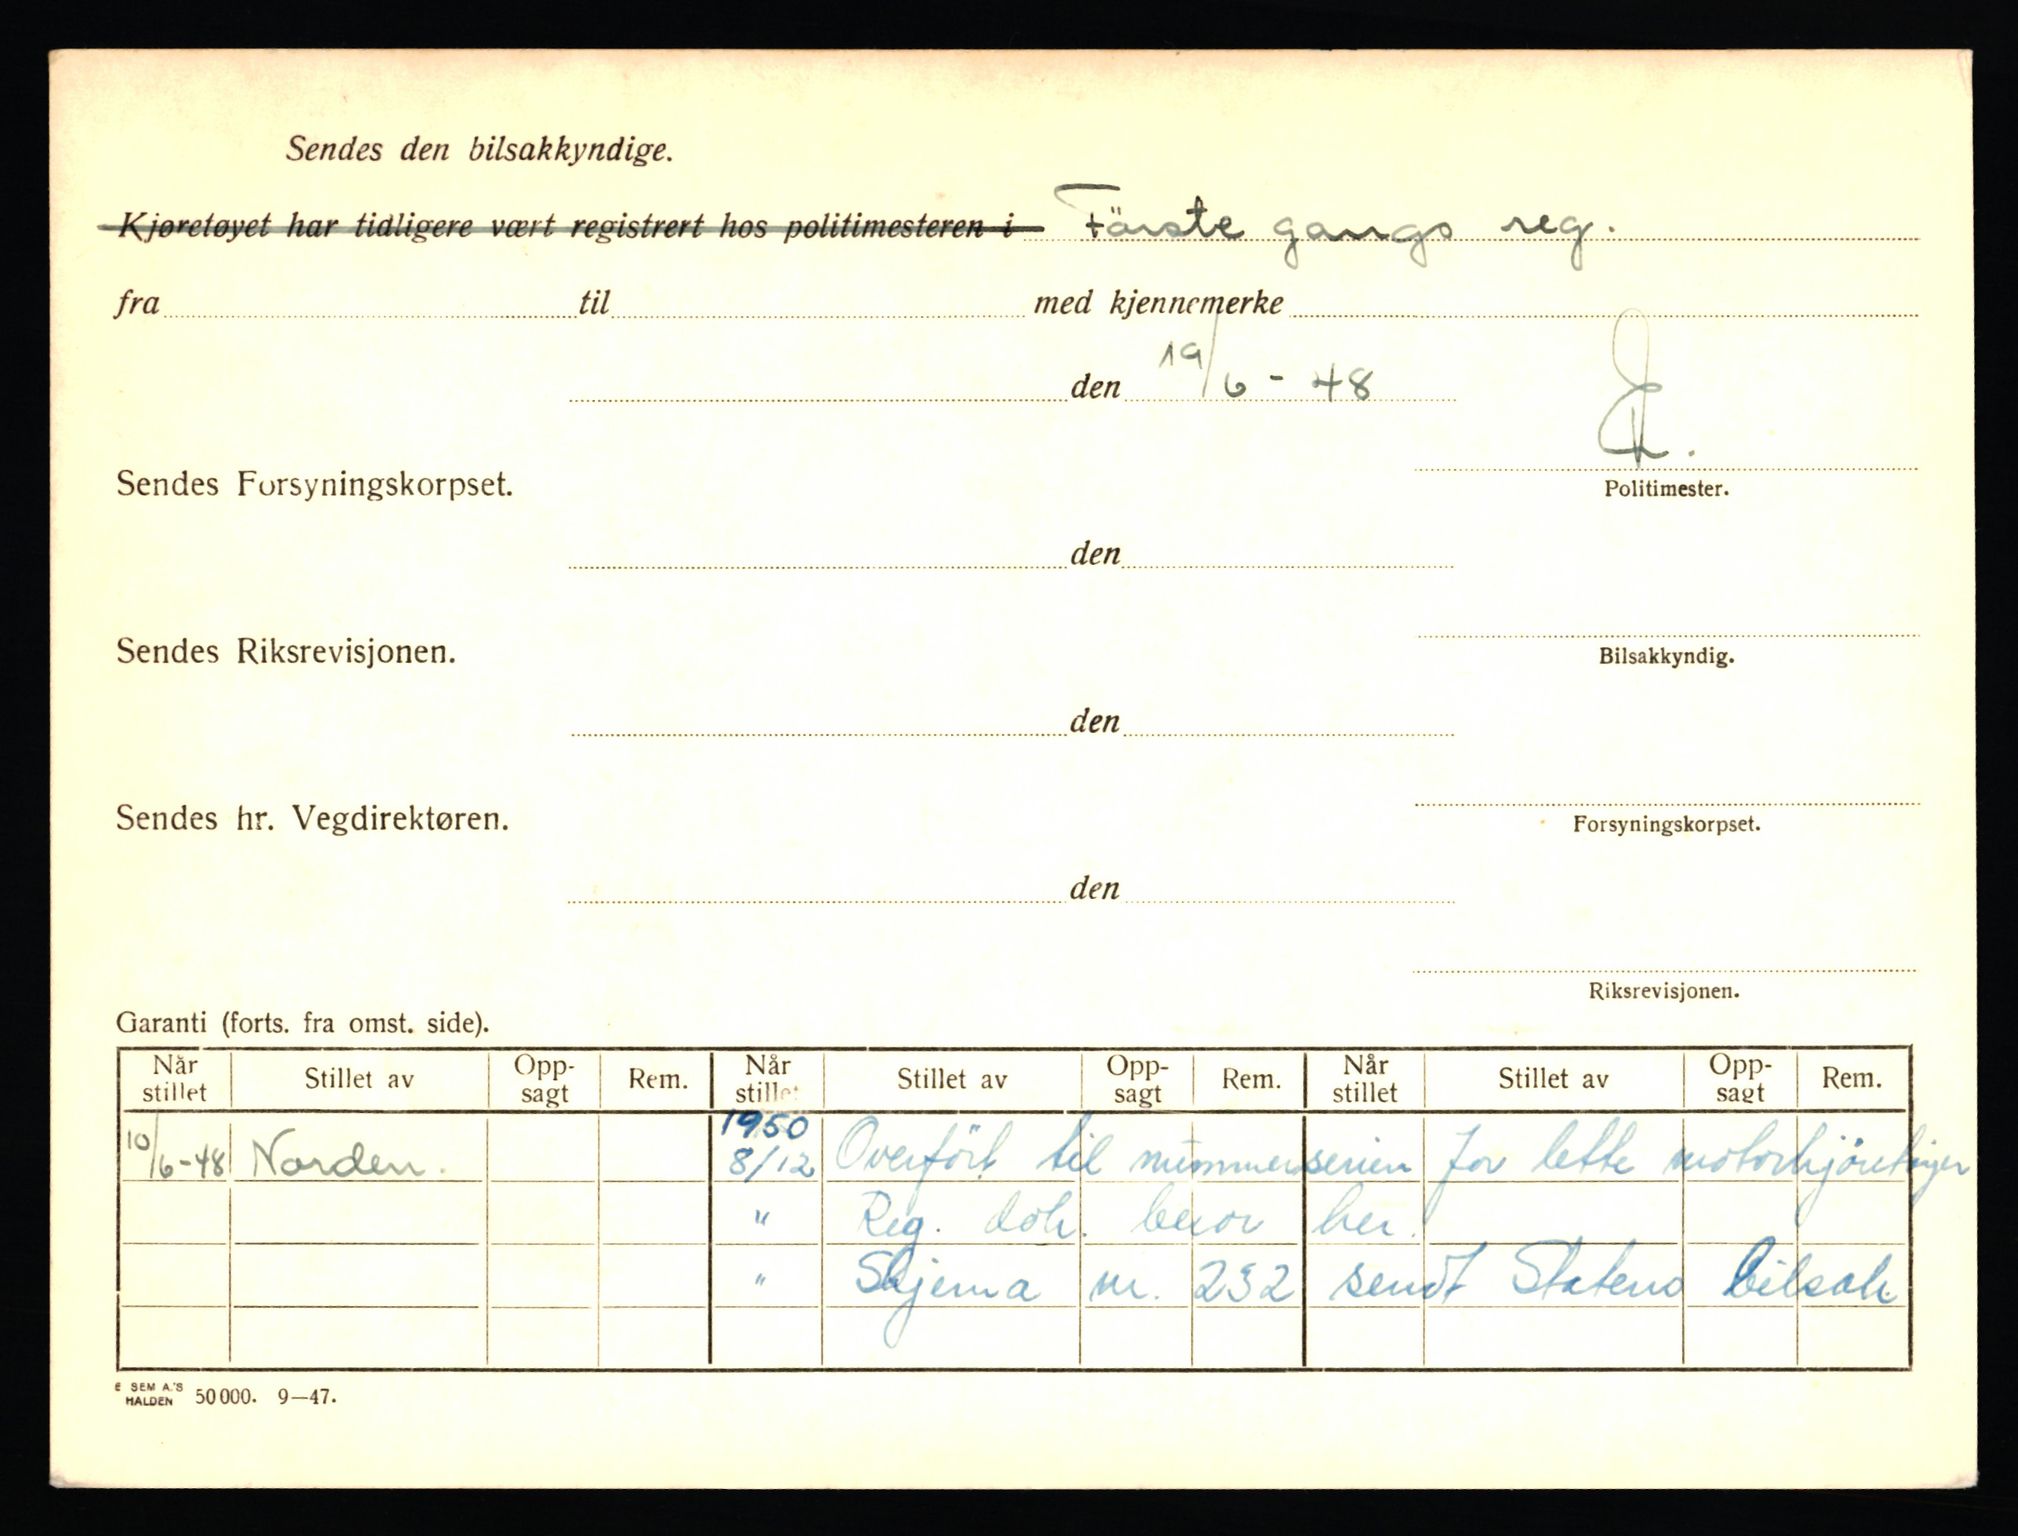 Sendes den bilsakkyndige.
Kjøretøyet har tidligere vært registrert hos politimesteren i Förste gangs reg.
fra til med kjennemerke
den 19/6 - 48
Sendes Forsyningskorpset.
Politimester.
den
Sendes Riksrevisjonen.
Bilsakkyndig.
den
Sendes hr. Vegdirektøren.
Forsyningskorpset.
den
Riksrevisjonen.
Garanti (forts. fra omst. side).
Når stillet Stillet av Opp-sagt Rem. Når stillet Stillet av Opp-sagt Rem. Når stillet Stillet av Opp-sagt Rem.
1950
10/6-48 Norden. 8/12 Overfört til nummerserien for lette motorkjöretöyer
" Reg. dok. beror her.
" Skjema nr. 232 sendt Statens bilsak.
E SEM A.'S
HALDEN 50 000. 9—47.